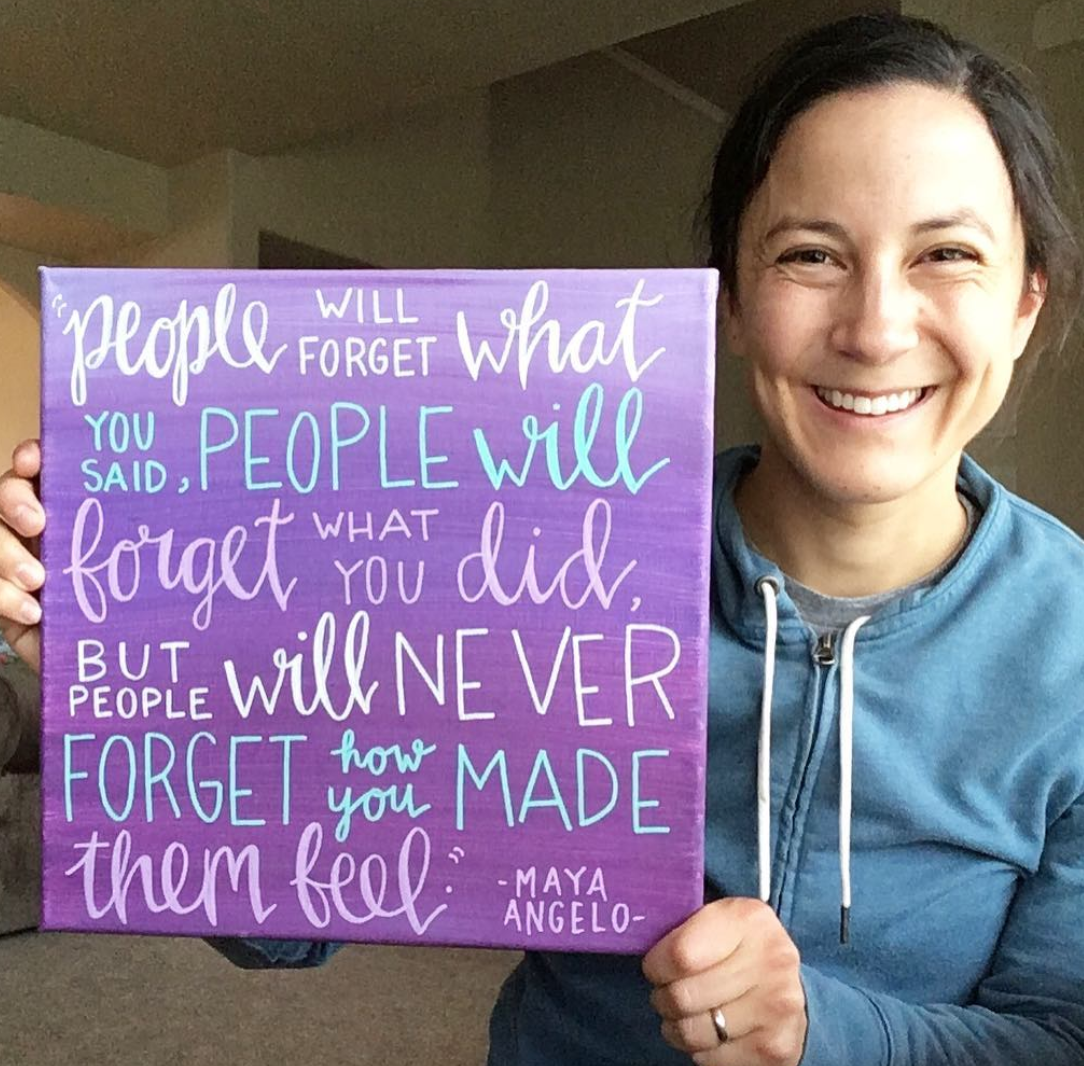 "people WILL FORGET what
YOU SAID, PEOPLE will
forget WHAT YOU did,
BUT PEOPLE will NEVER
FORGET how you MADE
them feel."
-MAYA
ANGELO-